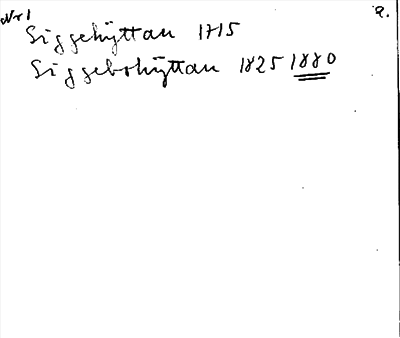 Nr 1 2.
Siggehyttan 1715
Siggebohyttan 1825 1880